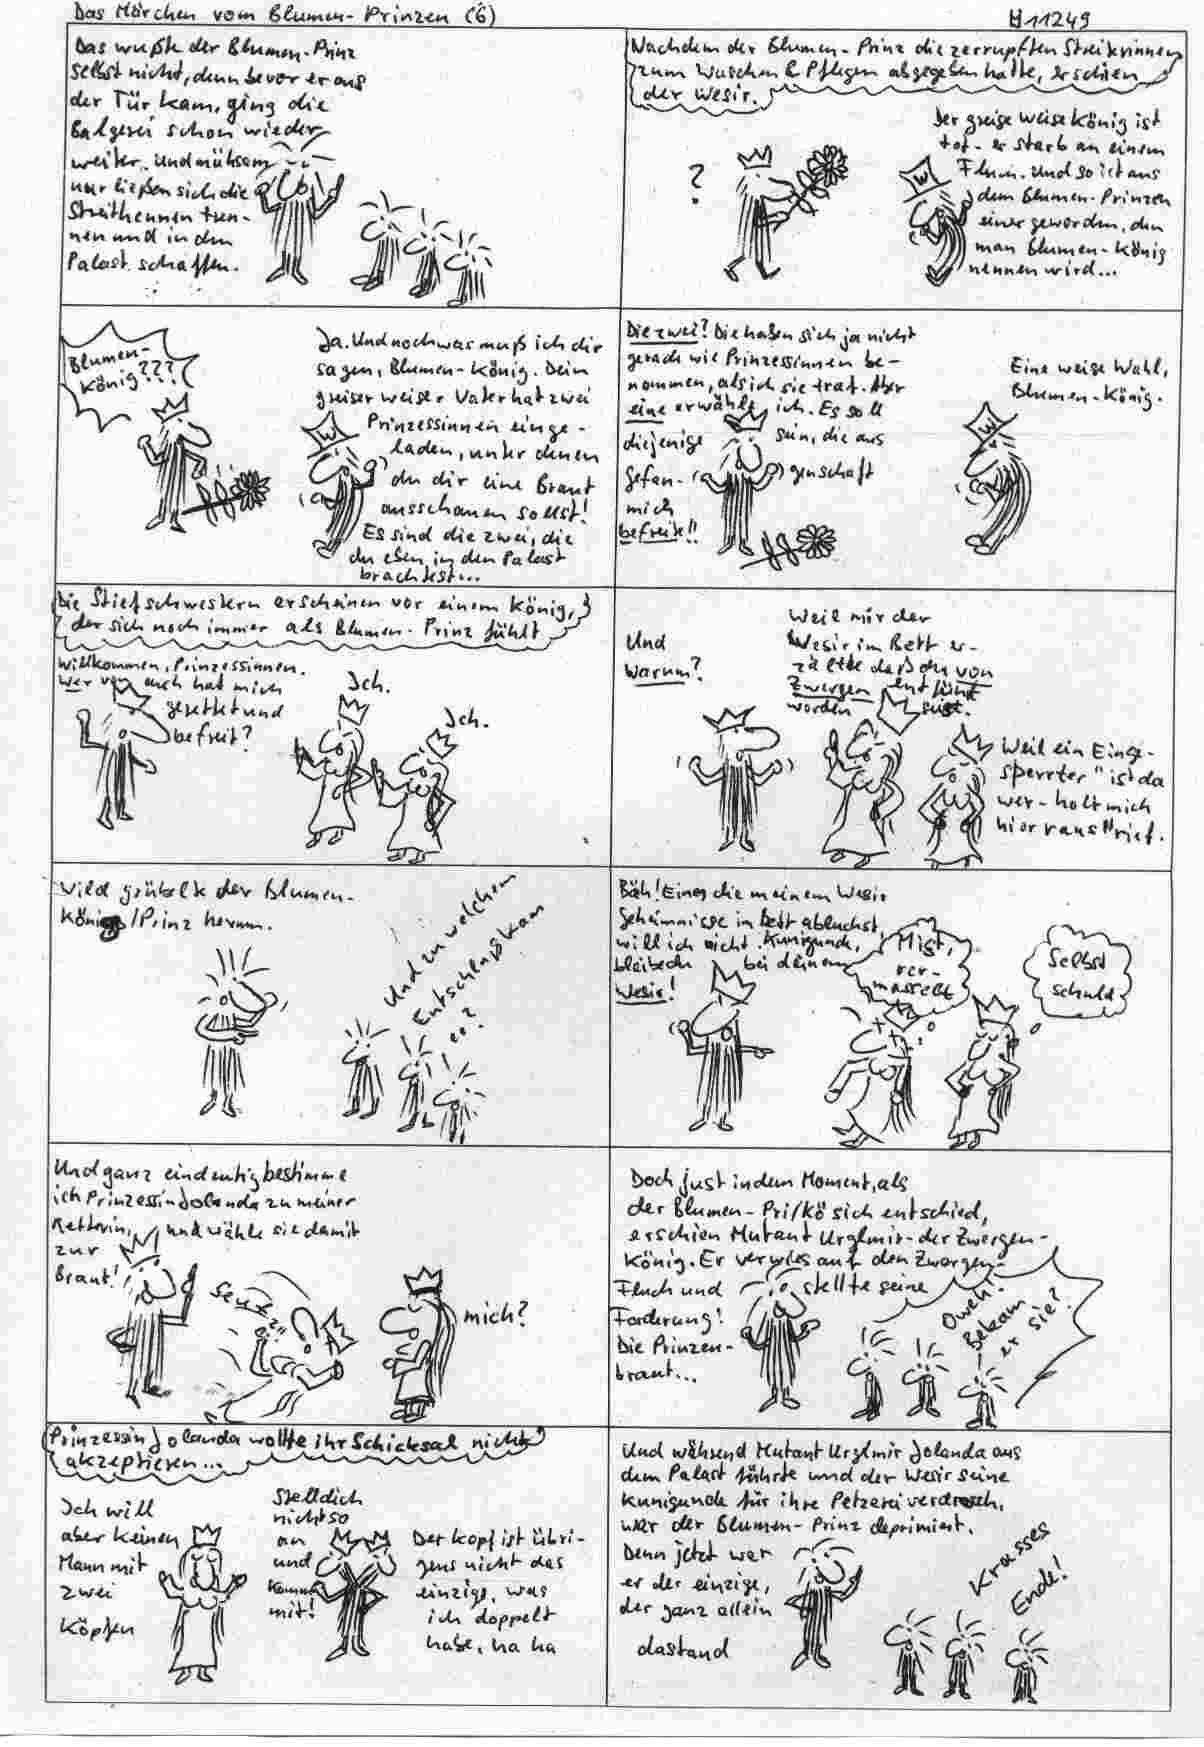 Das Märchen vom Blumen-Prinzen (6)
H11249
Das wußte der Blumen-Prinz
selbst nicht, denn bevor er aus
der Tür kam, ging die
Balgerei schon wieder
weiter. Und mühsam
nur ließen sich die
Streithennen tren-
nen und in den
Palast schaffen.
Nachdem der Blumen-Prinz die zerrupften Streiterinnen
zum Waschen & Pflegen abgegeben hatte, erschien
der Wesir.
?
Der greise weise König ist
tot - er starb an einem
Fluch. Und so ist aus
dem Blumen-Prinzen
einer geworden, den
man Blumen-König
nennen wird...
W
Blumen-
König???
Ja. Und noch was muß ich dir
sagen, Blumen-König. Dein
greiser weiser Vater hat zwei
Prinzessinnen einge-
laden, unter denen
du dir eine Braut
ausschauen sollst!
Es sind die zwei, die
du eben in den Palast
brachtest...
W
Die zwei? Die haben sich ja nicht
gerade wie Prinzessinnen be-
nommen, als ich sie traf. Aber
eine erwähle ich. Es soll
diejenige sein, die aus
Gefan- genschaft
mich
befreite!!
Eine weise Wahl,
Blumen-König.
W
Die Stiefschwestern erscheinen vor einem König,
der sich noch immer als Blumen-Prinz fühlt
Willkommen, Prinzessinnen.
Wer von euch hat mich
gerettet und
befreit?
Ich.
Ich.
Und
warum?
Weil mir der
Wesir im Bett er-
zälte daß du von
Zwergen entführt
worden seist.
Weil ein Einge-
sperrter "ist da
wer - holt mich
hier raus" rief.
Wild grübelte der Blumen-
König/Prinz herum.
Und zu welchem
Entschluß kam
er?
Bäh! Eine, die meinem Wesir
Geheimnisse im Bett abluchst,
will ich nicht. Kunigunde,
bleibe du bei deinem
Wesir!
Mist,
ver-
masselt
Selbst
schuld
Und ganz eindeutig bestimme
ich Prinzessin Jolanda zu meiner
Retterin, und wähle sie damit
zur
Braut!
Seufz
mich?
Doch just in dem Moment, als
der Blumen-Pri/Kö sich entschied,
erschien Mutant Urglmir - der Zwergen-
könig. Er verwies auf den Zwergen-
Fluch und stellte seine
Forderung!
Die Prinzen-
braut...
Oweh!
Bekam
er sie?
Prinzessin Jolanda wollte ihr Schicksal nicht
akzeptieren...
Ich will
aber keinen
Mann mit
zwei
Köpfen
Stell dich
nicht so
an
und
komm
mit!
Der Kopf ist übri-
gens nicht das
einzige, was
ich doppelt
habe, ha ha
Und während Mutant Urglmir Jolanda aus
dem Palast führte und der Wesir seine
Kunigunde für ihre Petzerei verdrosch,
war der Blumen-Prinz deprimiert.
Denn jetzt war
er der einzige,
der ganz allein
dastand
Krasses
Ende!